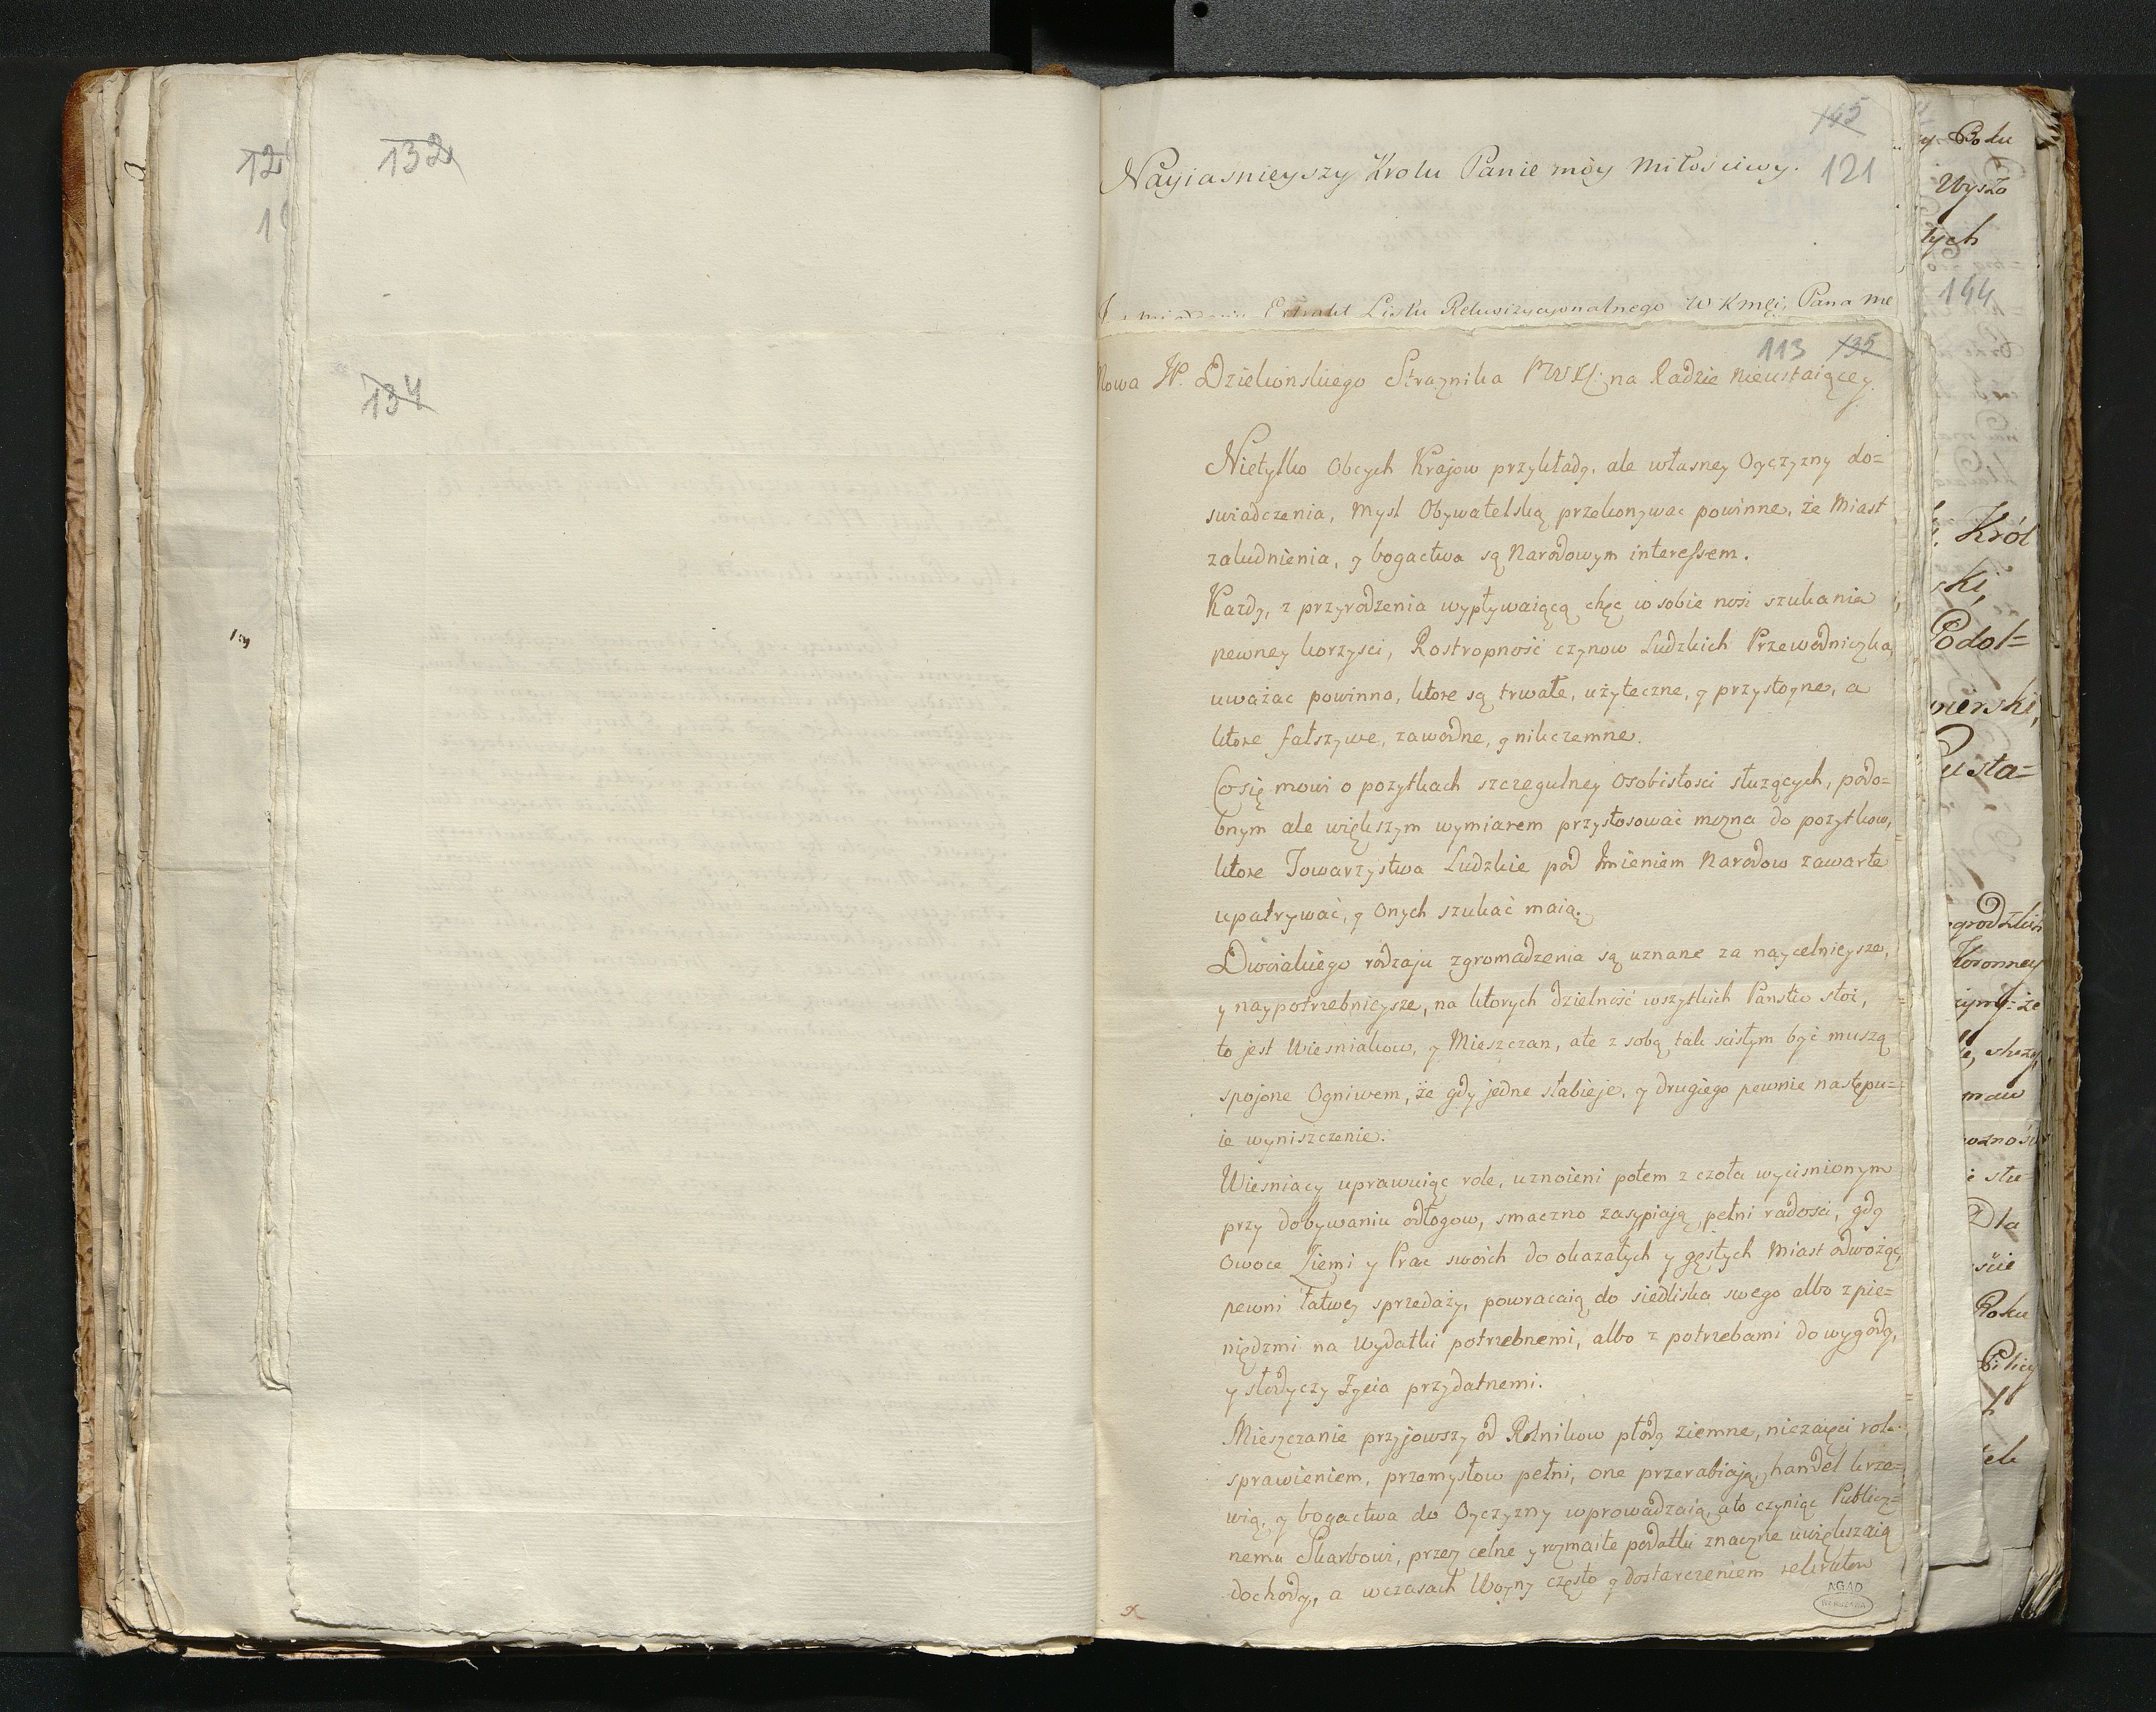 12
132
134
145
121
Nayiasnieyszy Krolu Panie móy Miłosciwy.
Extrakt Listu Rekwizycyonalnego W Kmci, Pana me
113 135
Mowa JP. Dziekonskiego Straznika na Radzie Nieustaiącey.
Nietylko Obcych Krajow przykłady, ale własney Oyczyzny do=
swiadczenia, Mysl Obywatelską przekonywac powinne, że Miast
zaludnienia, y bogactwa są Narodowym interessem.
Kazdy, z przyrodzenia wypływaiącą chęc w sobie nosi szukania
pewney korzysci, Rostropność czynow Ludzkich Przewodniczka,
uważac powinna, ktore są trwałe, użyteczne, y przystoyne, a
ktore fałszywe, zawodne, y nikczemne.
Co się mowi o pozytkach szczegulney Osobistosci służących, podo=
bnym ale większym wymiarem przystosować mozna do pozytkow,
ktore Towarzystwa Ludzkie pod Imieniem Narodow zawarte
upatrywać, y Onych szukać maią.
Dwoiakiego rodzaju zgromadzenia są uznane za naycelnieysze,
y naypotrzebnieysze, na ktorych dzielność wszytkich Panstw stoi,
to jest Wiesniakow, y Mieszczan, ale z sobą tak scisłym być muszą
spojone Ogniwem, że gdy jedne słabieje, y drugiego pewnie następu=
ie wyniszczenie.
Wiesniacy uprawuiąc role, uznoieni potem z czoła wycisnionym
przy dobywaniu odłogow, smaczno zasypiają, pełni radosci, gdy
Owoce Ziemi y Prac swoich do okazałych y gęstych Miast odwożą,
pewni łatwey sprzedaży, powracaią do siedliska swego albo z pie=
niędzmi na Wydatki potrzebnemi, albo z potrzebami do wygody,
y słodyczy Zycia przydatnemi.
Mieszczanie przyjowszy od Rolnikow płody ziemne, niezaięci roli
sprawieniem, przemysłow pełni, one przerabiają, handel krze=
wią, y bogactwa do Oyczyzny wprowadzaią, a to czyniąc Publicz=
nemu Skarbowi, przez celne y rozmaite podatki znaczne uwiększaią
dochody, a w czasach Woyny często y dostarczeniem rekrutow
AGAD
WARSZAWA
Roku
Wyszo
tych
144
Król
ski,
Podol=
mierski,
usta=
grodzkich
Koronney
żymy=że
maw
Dla
Roku